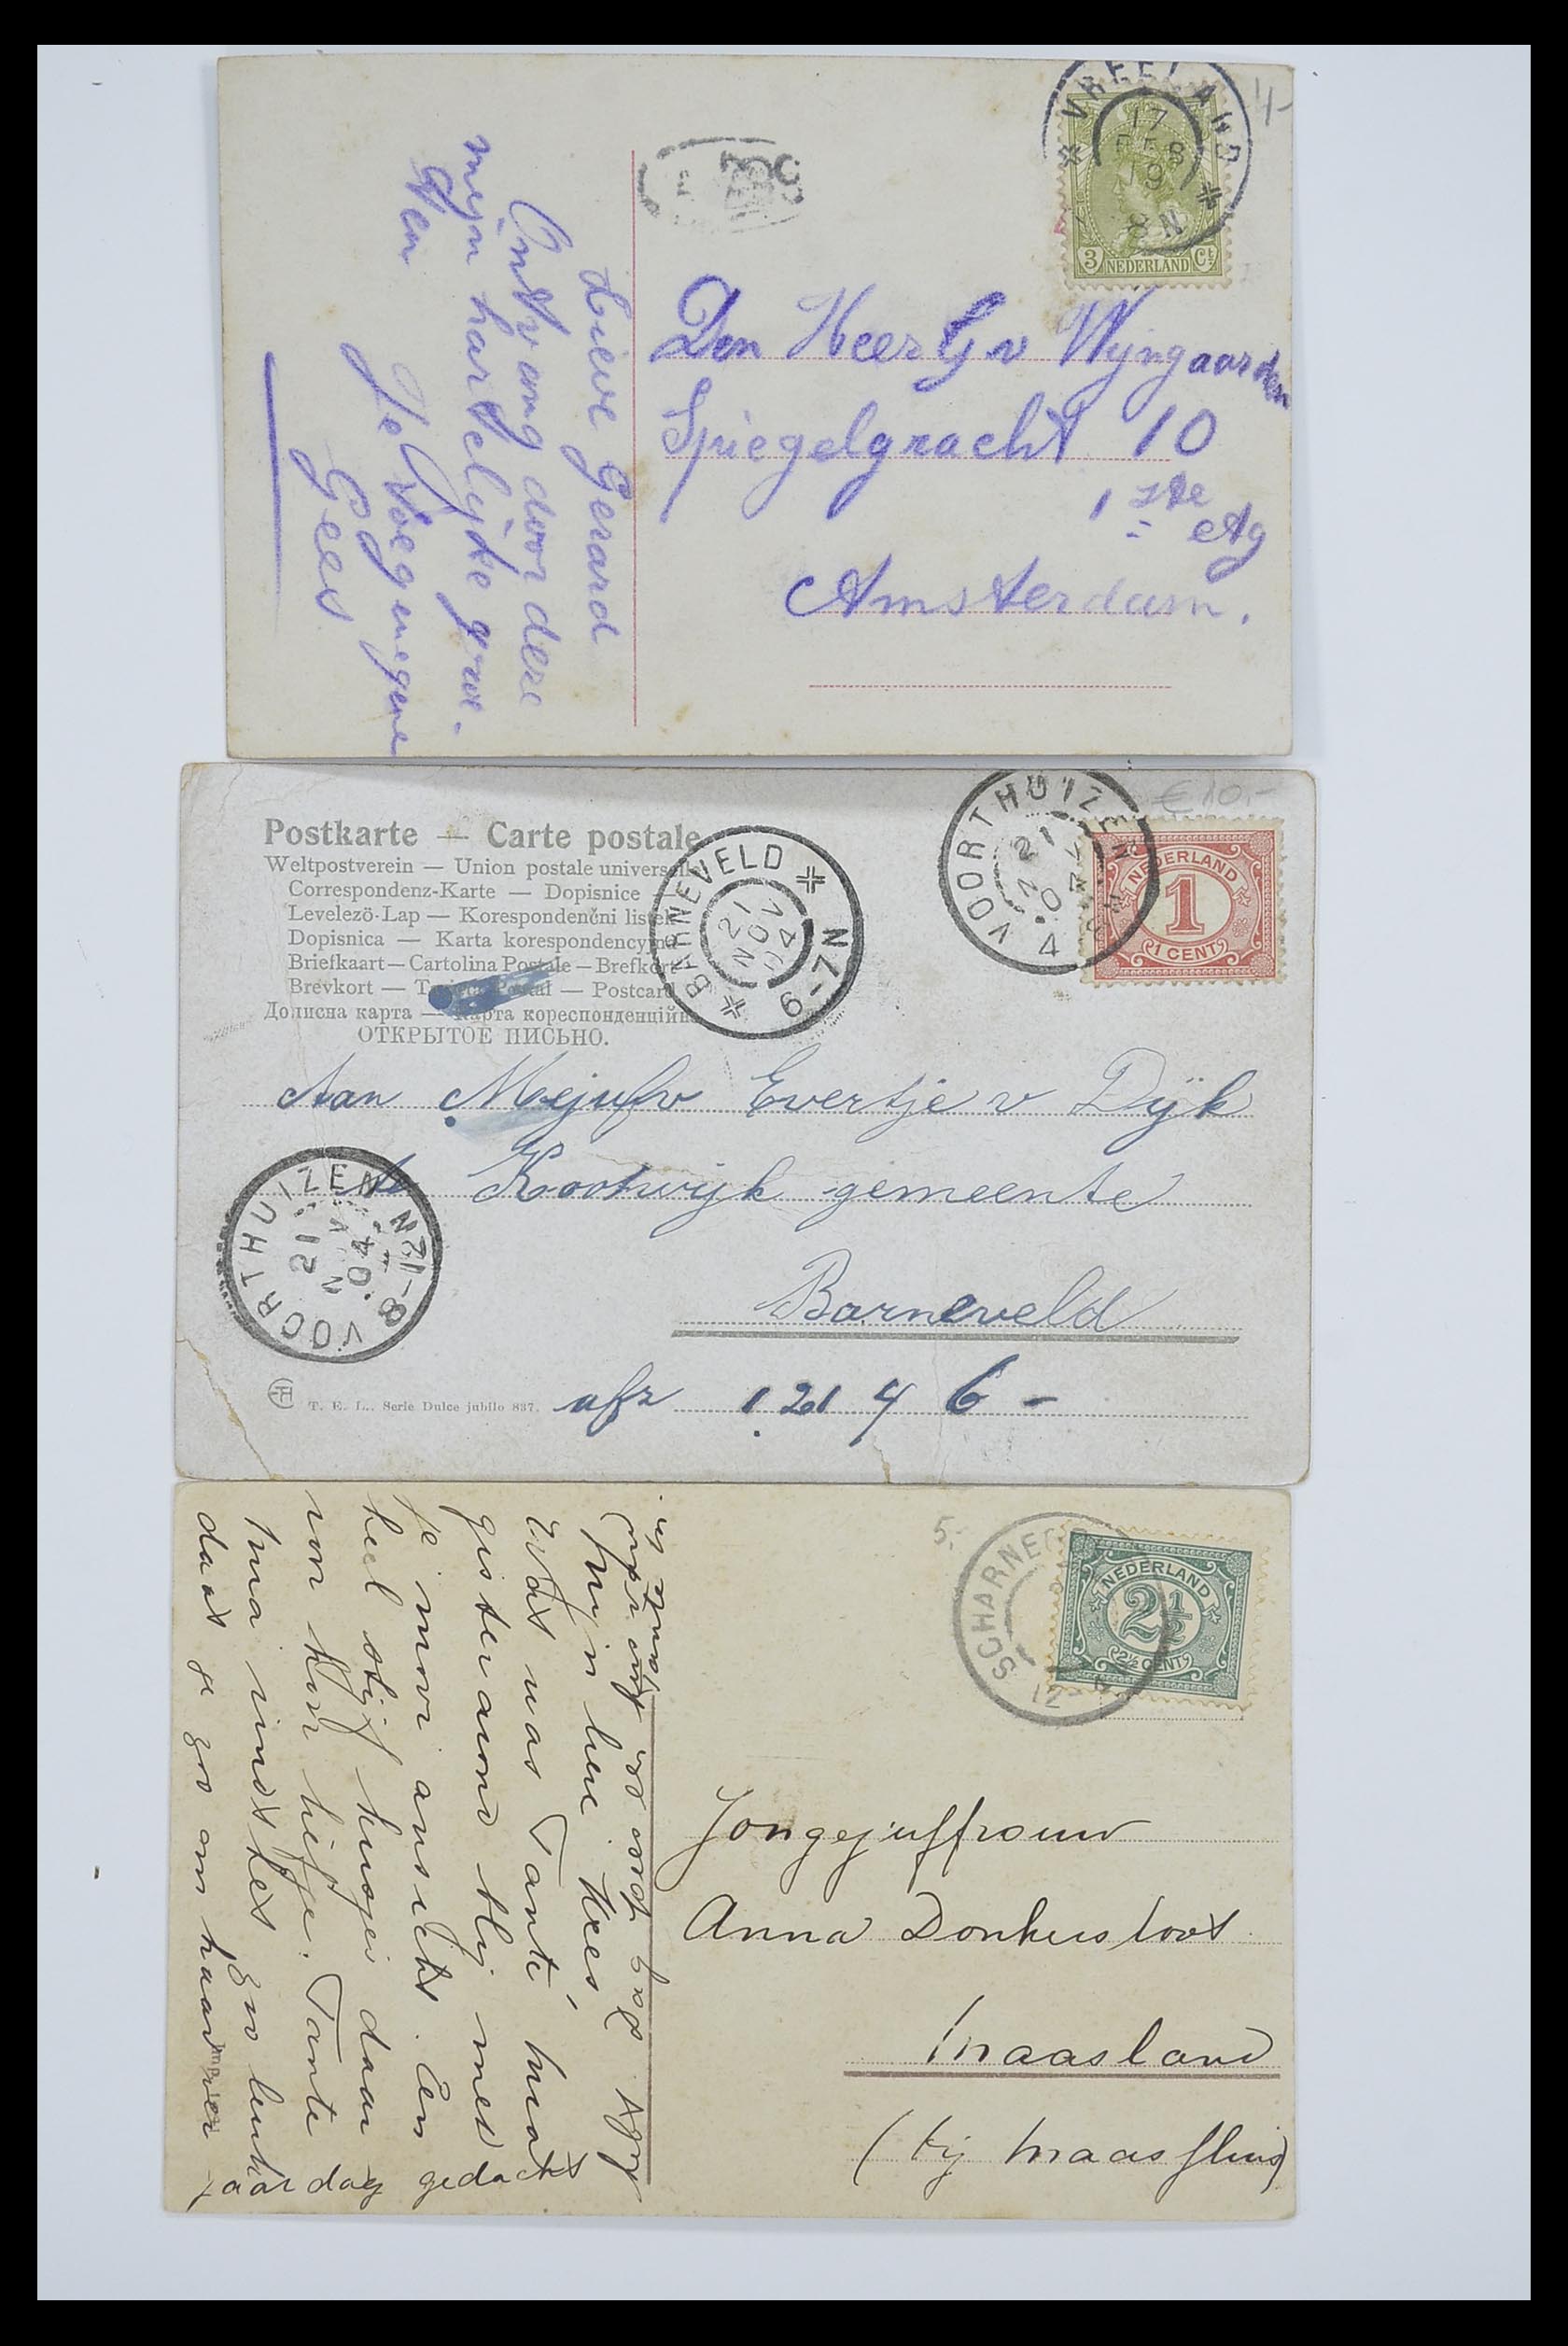 VREELAND
17
FEB
19
8 N
3 NEDERLAND Ct
4-
Den Heer G v Wyngaarden
Spiegelgracht 10
1ste Etg
Amsterdam.
Lieve Gerard
Ontvang door deze
mijn hartelijke groe-
ten
Je Toegenegene
Gees
Postkarte — Carte postale
Weltpostverein — Union postale universelle
Correspondenz-Karte — Dopisnice —
Levelező-Lap — Korespondenčni listek
Dopisnica — Karta korespondencyjna
Briefkaart — Cartolina Postale — Brefkort
Brevkort — Tarjeta Postal — Postcard
Дописна карта — Карта кореспонденційна
ОТКРЫТОЕ ПИСЬНО.
BARNEVELD
21
NOV
04
6-7N
VOORTHUIZEN
21
4
€ 10.-
NEDERLAND
1
1 CENT
Aan Mejufv Evertje v Dÿk
te Kootwijk gemeente
Barneveld
VOORTHUIZEN
21
04
8-12N
T. E. L. Serie Dulce jubilo 837.
afz 1.21 4 6 -
5.-
SCHARNE
12-
NEDERLAND
2½
2½ CENT
Jongejuffrouw
Anna Donkersloot
Maasland
(bij Maassluis)
Mijn lieve Kees
Wat was Tante Mia
gisteravond blij met
je mooi ansicht. En
heel stijf hoor daar
voor hoor liefje. Tante
Mia vindt het zoo leuk
dat je zoo om haar
jaardag gedacht